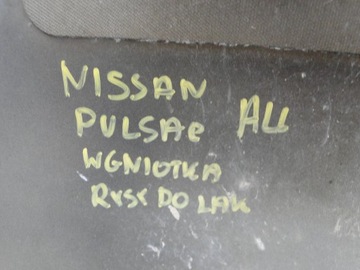 NISSAN
PULSAR ALL
WGNIOTKA
RYSY DO LAK